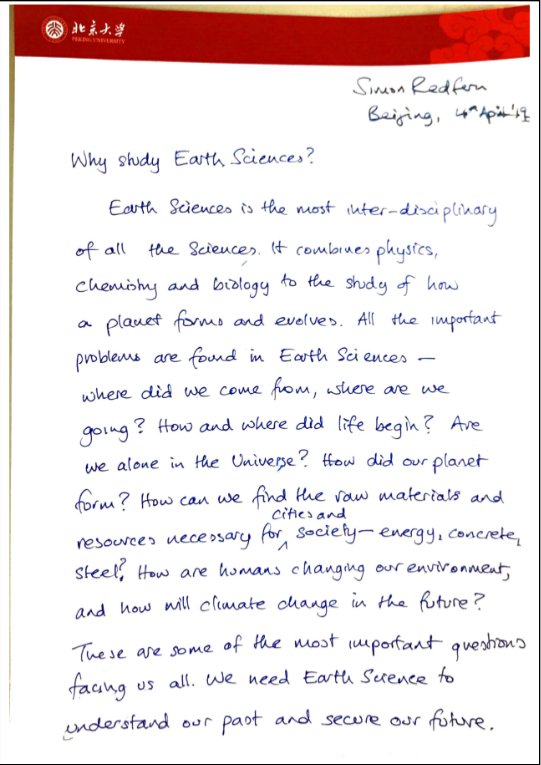 北京大学
PEKING UNIVERSITY
Simon Redfern
Beijing, 4th April '19
Why study Earth Sciences?
Earth Sciences is the most inter-disciplinary
of all the Sciences. It combines physics,
chemistry and biology to the study of how
a planet forms and evolves. All the important
problems are found in Earth Sciences —
where did we come from, where are we
going? How and where did life begin? Are
we alone in the Universe? How did our planet
form? How can we find the raw materials and
cities and
resources necessary for society — energy, concrete,
steel? How are humans changing our environment,
and how will climate change in the future?
These are some of the most important questions
facing us all. We need Earth Science to
understand our past and secure our future.